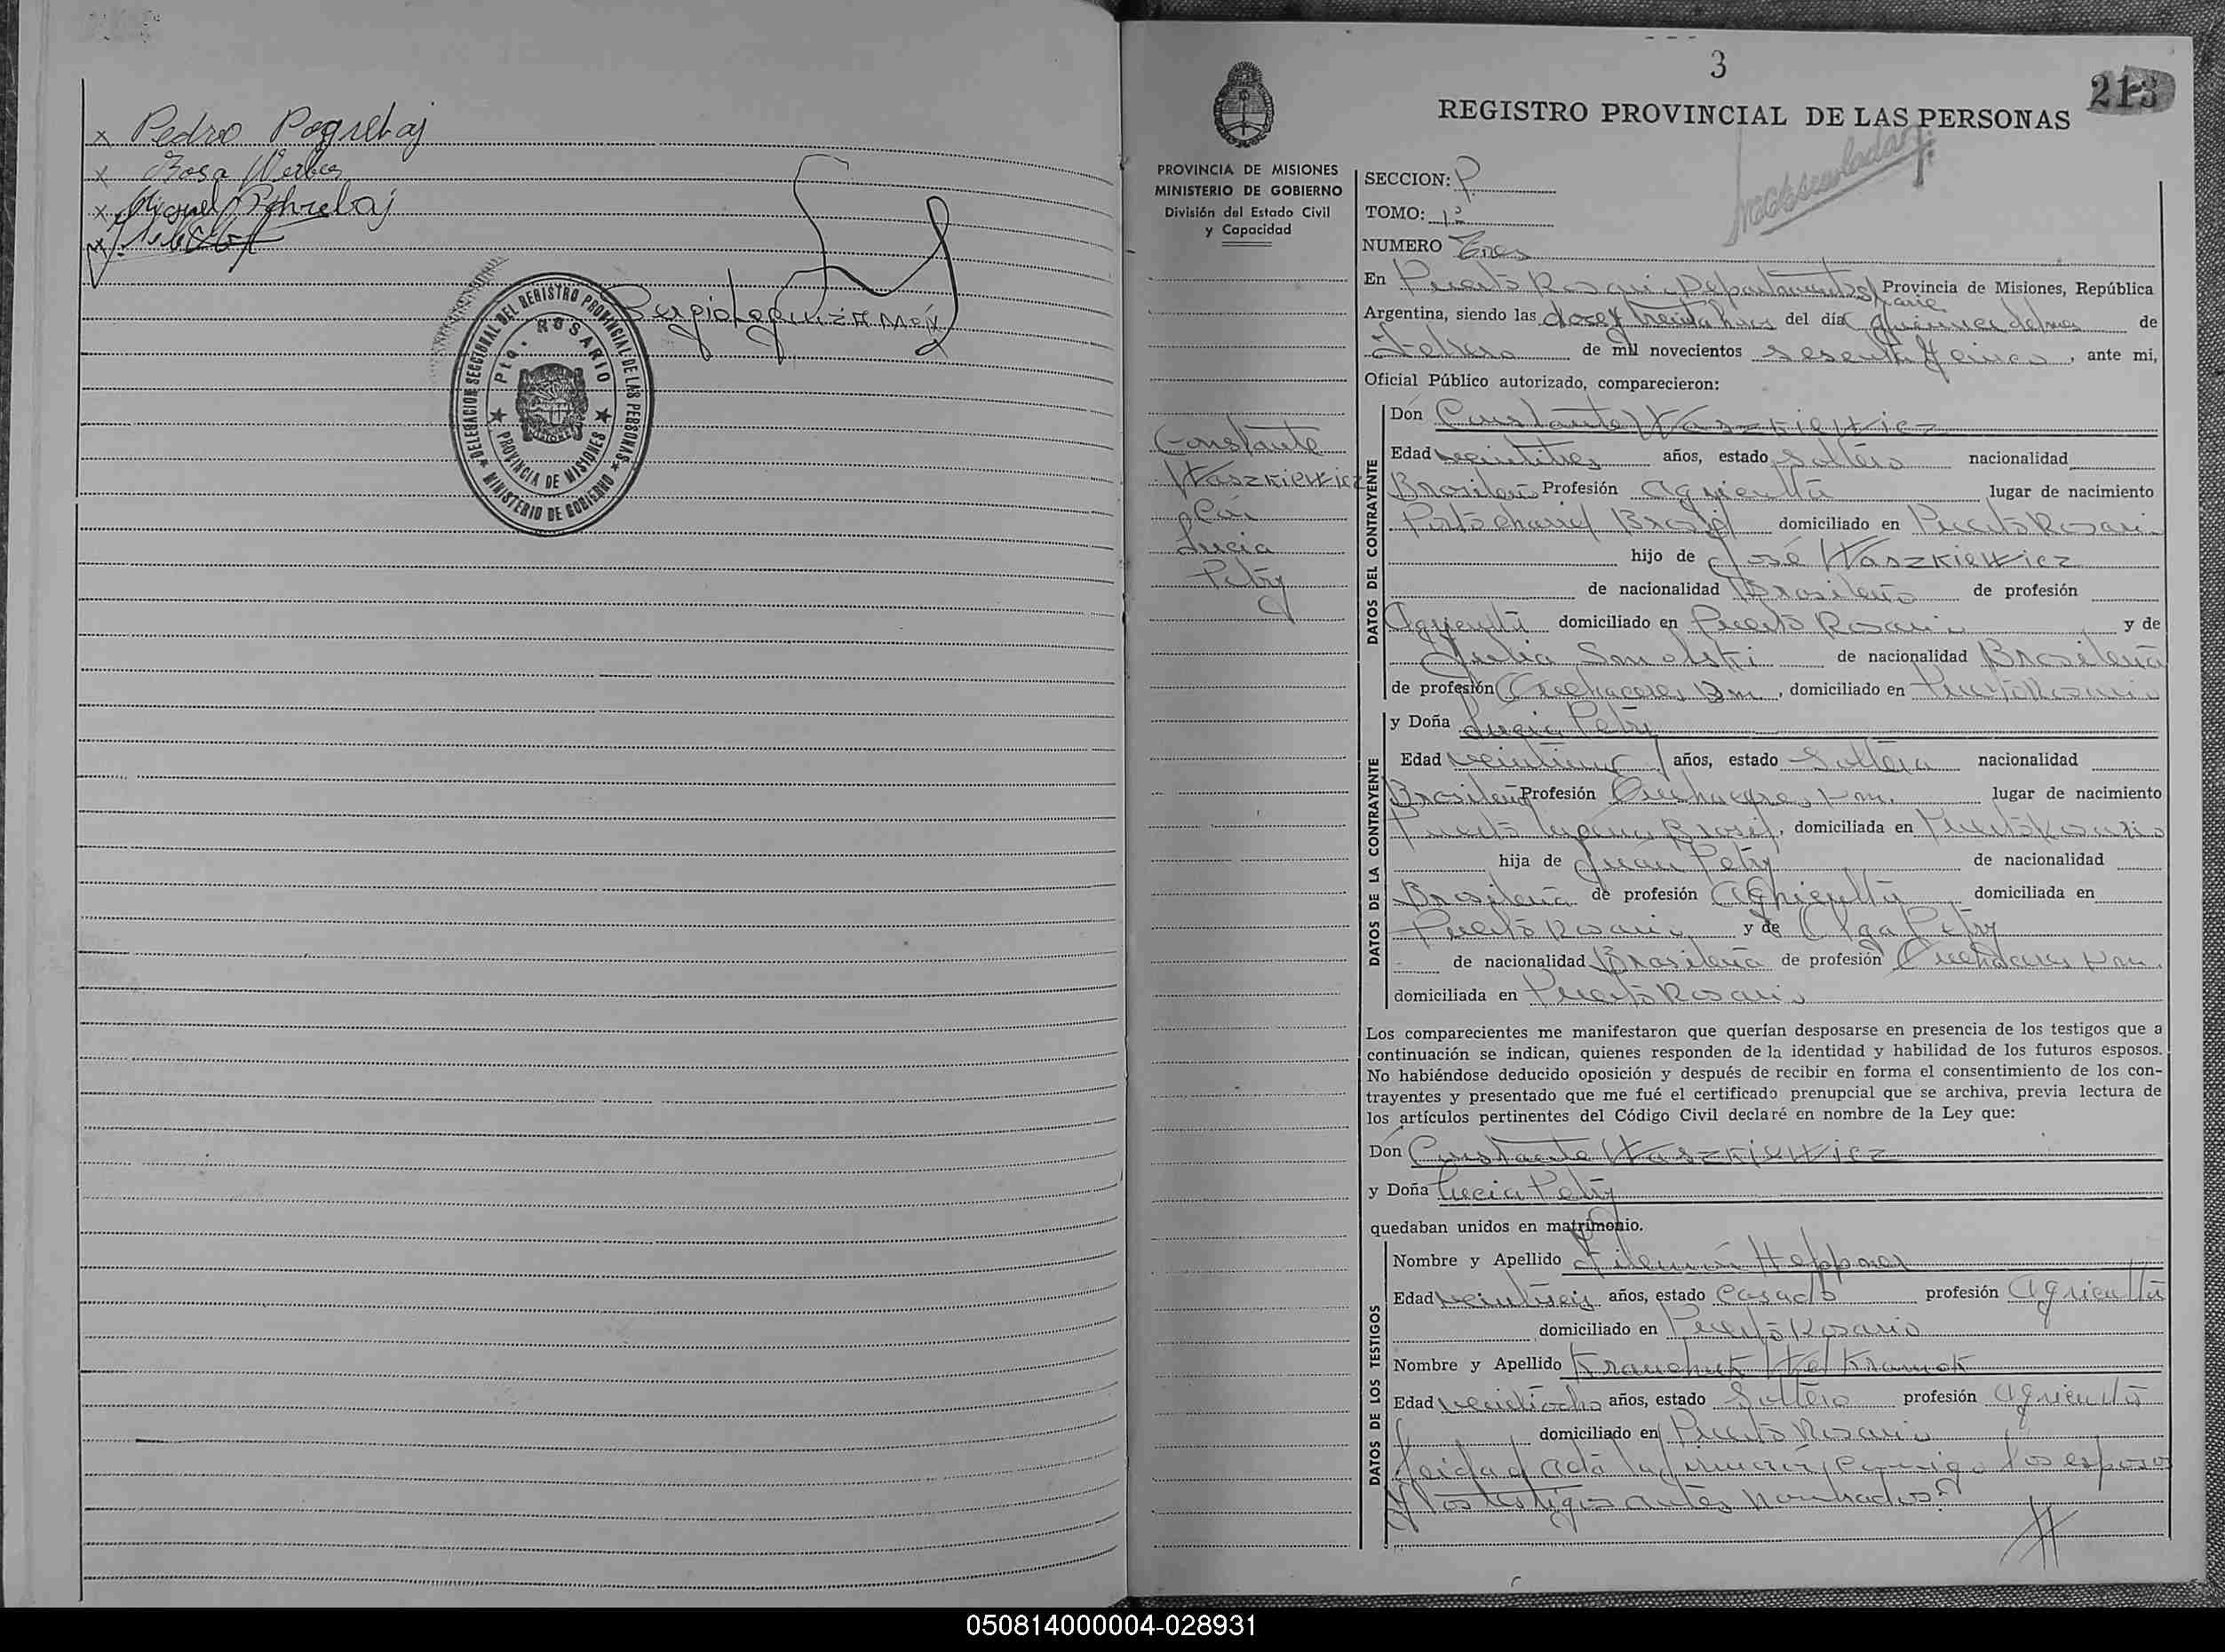 x Pedro Pogrebaj
x Rosa Weber
x Miguel Pohrebaj
DELEGACION SECCIONAL DEL REGISTRO PROVINCIAL DE LAS PERSONAS
MINISTERIO DE GOBIERNO
Pto. ROSARIO
PROVINCIA DE MISIONES
3
213
REGISTRO PROVINCIAL DE LAS PERSONAS
PROVINCIA DE MISIONES
MINISTERIO DE GOBIERNO
División del Estado Civil
y Capacidad
Constante
Waszkiewicz
con
Lucia
Petry
SECCION: P
TOMO: 1º
NUMERO Tres
En Puerto Rosario Departamento Provincia de Misiones, República
Argentina, siendo las doce y treinta horas del día quince del mes de
Febrero de mil novecientos sesenta y cinco, ante mi,
Oficial Público autorizado, comparecieron:
DATOS DEL CONTRAYENTE
Don Constante Waszkiewicz
Edad veintitres años, estado Soltero nacionalidad
Brasileño Profesión Agricultor lugar de nacimiento
Brasil domiciliado en Puerto Rosario
hijo de José Waszkiewicz
de nacionalidad Brasileño de profesión
Agricultor domiciliado en Puerto Rosario y de
Julia Smolski de nacionalidad Brasileña
de profesión Quehaceres Dom, domiciliado en Puerto Rosario
DATOS DE LA CONTRAYENTE
y Doña Lucia Petry
Edad años, estado Soltera nacionalidad
Brasileña Profesión Quehaceres Dom. lugar de nacimiento
Puerto Brasil, domiciliada en Puerto Rosario
hija de Juan Petry de nacionalidad
Brasileña de profesión Agricultor domiciliada en
Puerto Rosario y de Olga Petry
de nacionalidad Brasileña de profesión Quehaceres Dom.
domiciliada en Puerto Rosario
Los comparecientes me manifestaron que querían desposarse en presencia de los testigos que a
continuación se indican, quienes responden de la identidad y habilidad de los futuros esposos.
No habiéndose deducido oposición y después de recibir en forma el consentimiento de los con-
trayentes y presentado que me fué el certificado prenupcial que se archiva, previa lectura de
los artículos pertinentes del Código Civil declaré en nombre de la Ley que:
Don Constante Waszkiewicz
y Doña Lucia Petry
quedaban unidos en matrimonio.
DATOS DE LOS TESTIGOS
Nombre y Apellido Heppner
Edad veintiseis años, estado Casado profesión Agricultor
domiciliado en Puerto Rosario
Nombre y Apellido
Edad veintiocho años, estado Soltero profesión Agricultor
domiciliado en Puerto Rosario
Leida el acta la firmaron conmigo los esposos
y los testigos antes nombrados
050814000004-028931